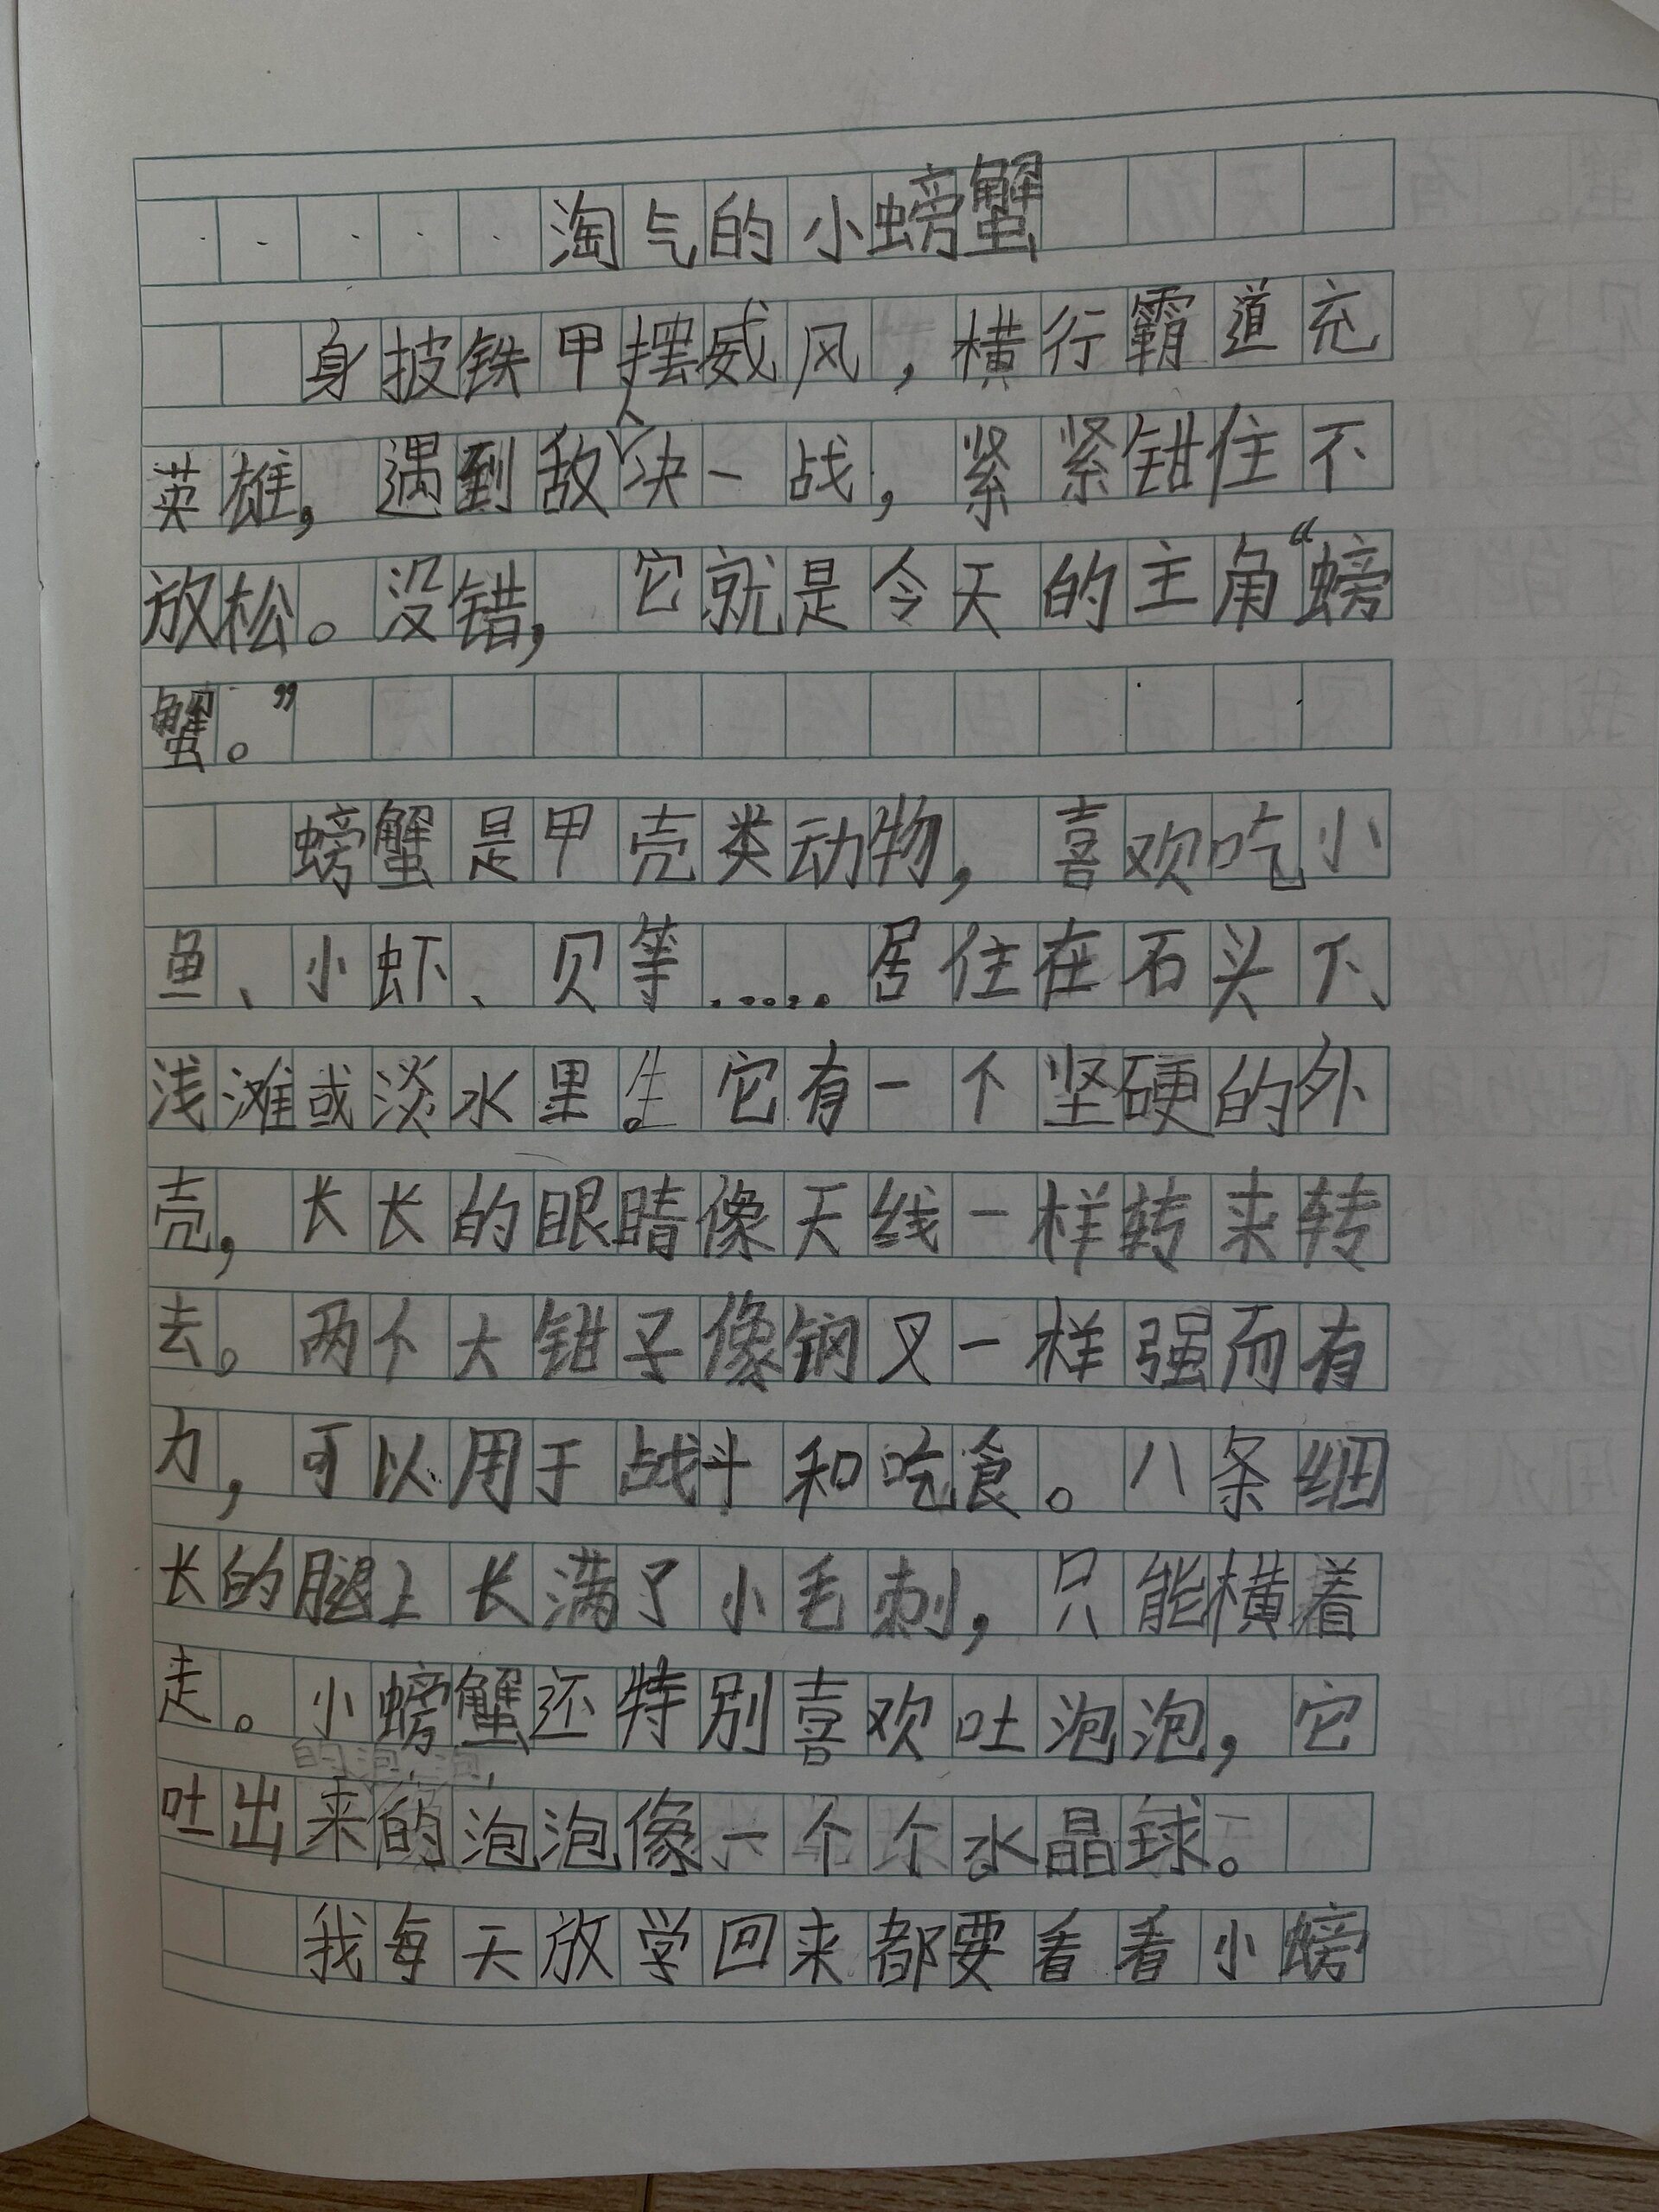 淘气的小螃蟹
身披铁甲摆威风，横行霸道充
英雄，遇到敌人决一战，紧紧钳住不
放松。没错，它就是今天的主角“螃
蟹。”
螃蟹是甲壳类动物，喜欢吃小
鱼、小虾、贝等……居住在石头下、
浅滩或淡水里。它有一个坚硬的外
壳，长长的眼睛像天线一样转来转
去。两个大钳子像钢叉一样强而有
力，可以用于战斗和吃食。八条细
长的腿上长满了小毛刺，只能横着
走。小螃蟹还特别喜欢吐泡泡，它
吐出来的泡泡像一个个水晶球。
我每天放学回来都要看看小螃